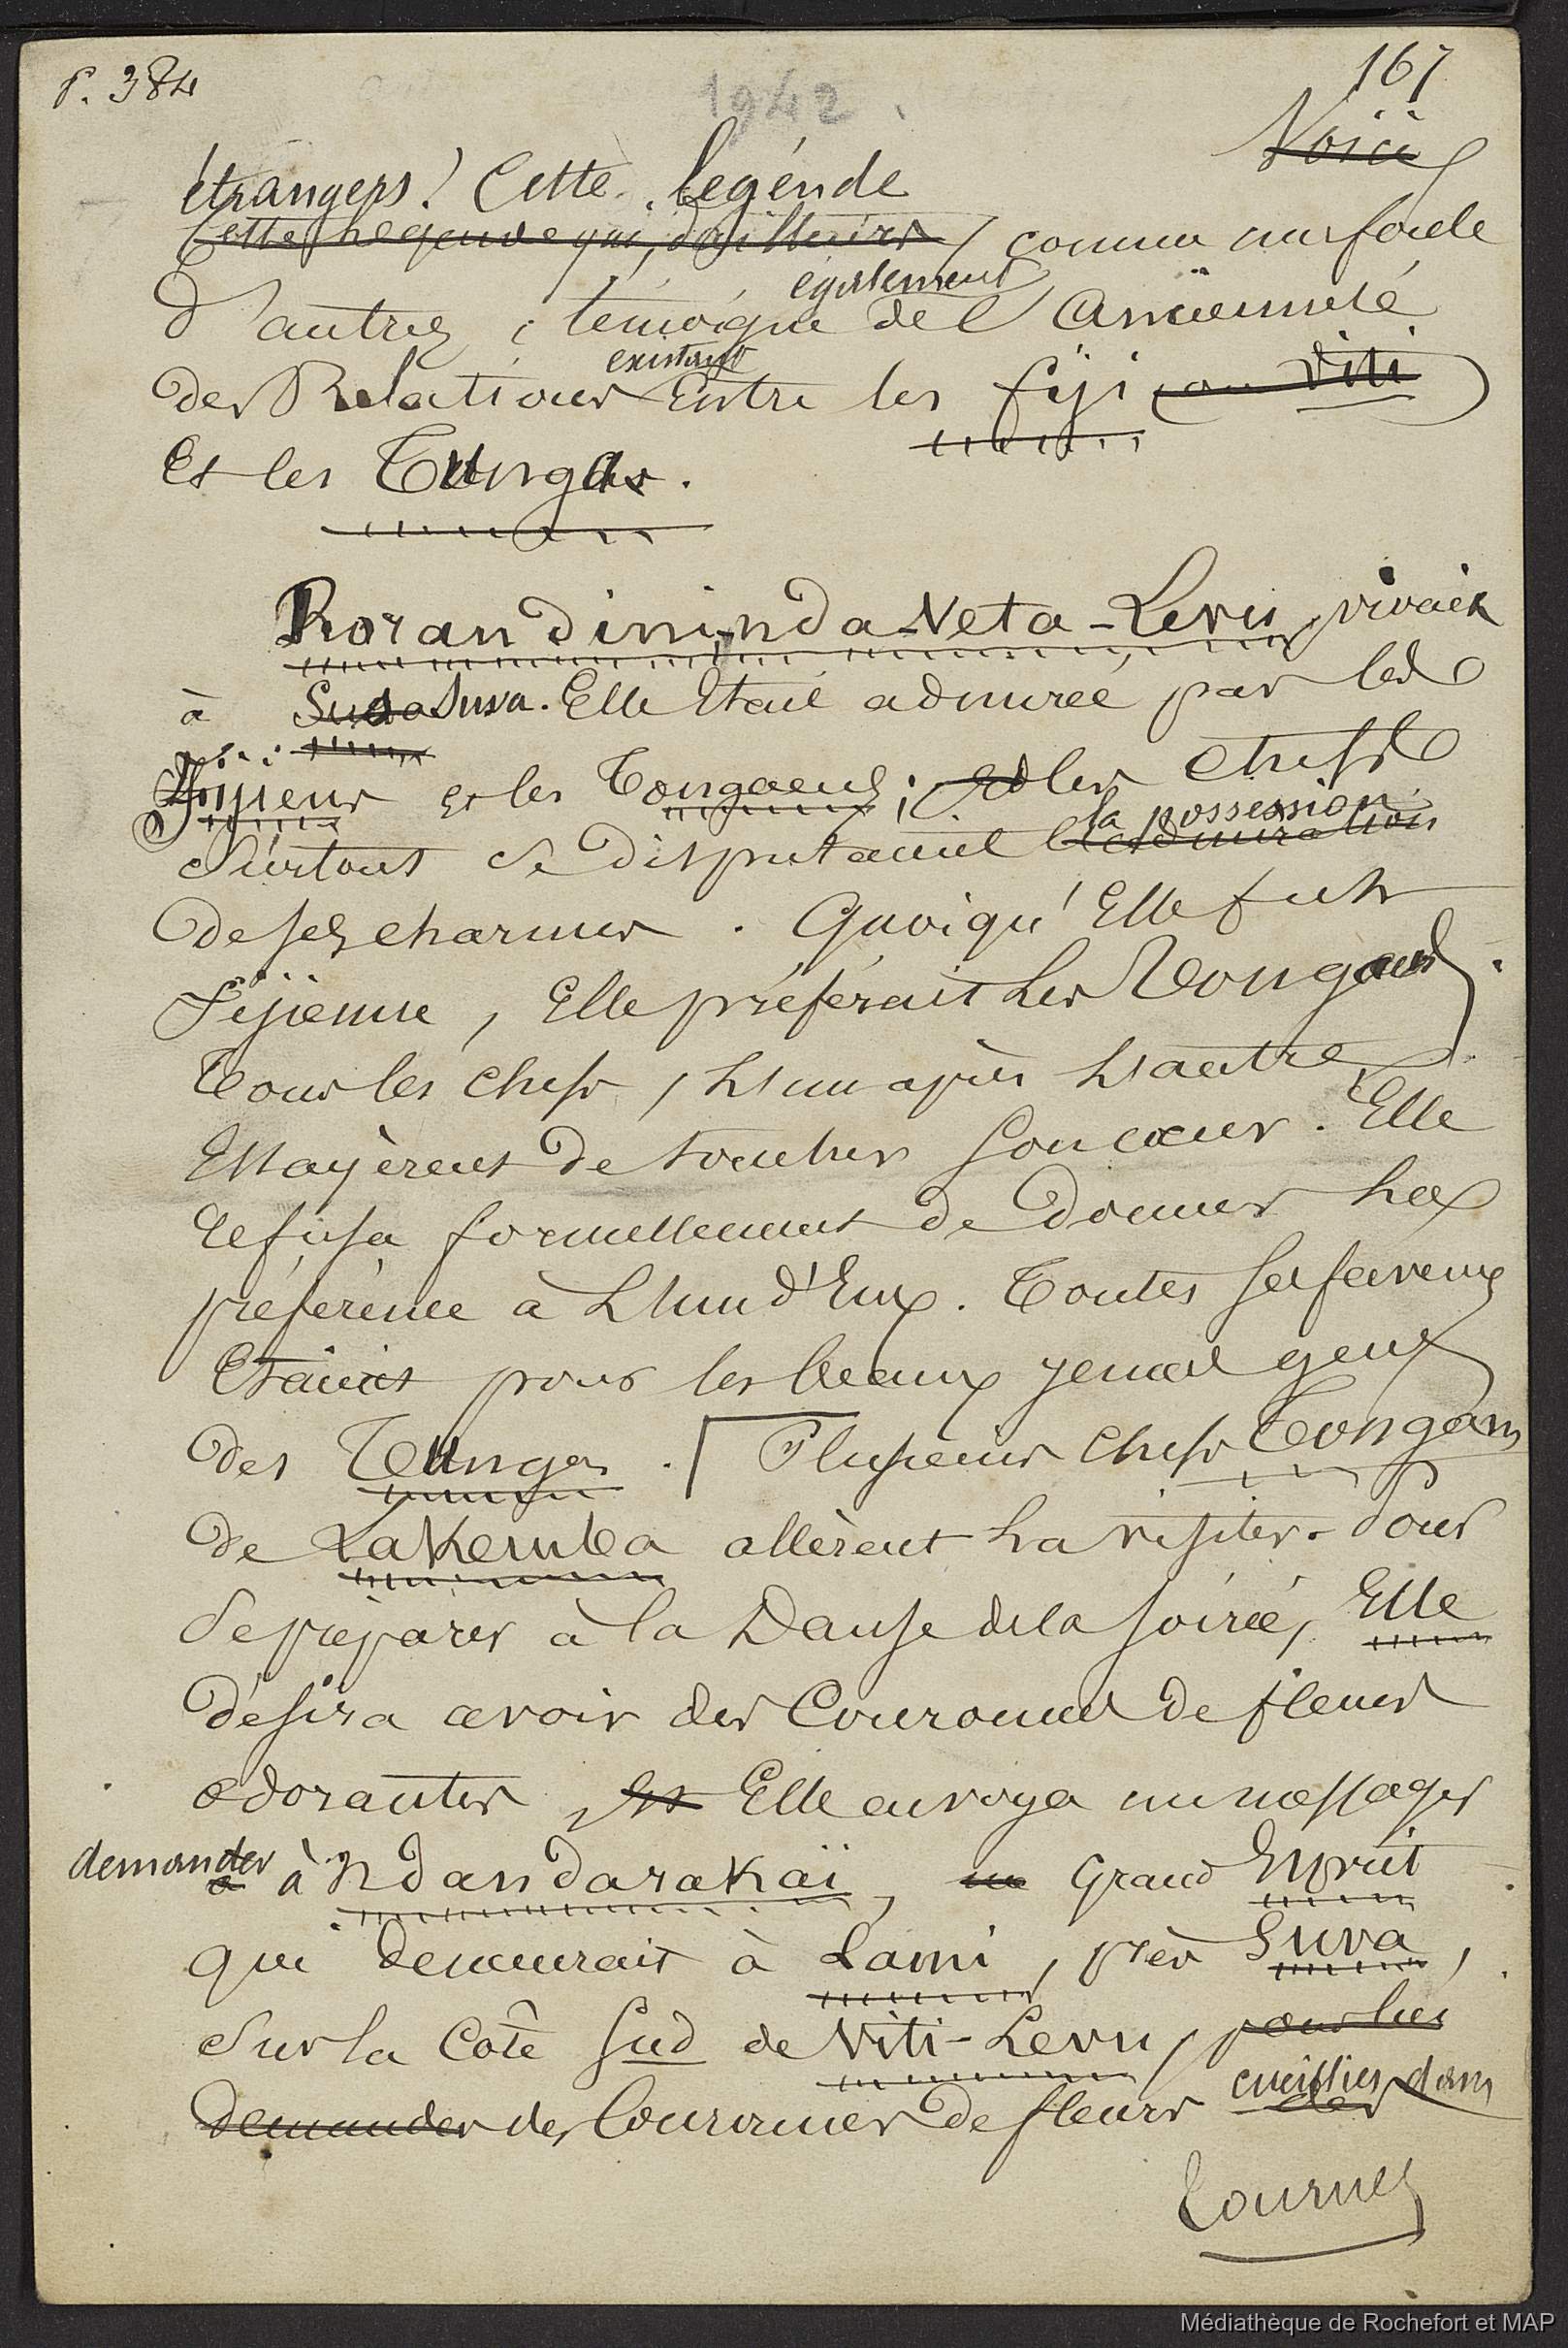 P. 384
1942.
167
Voici
étrangers! Cette légende
Cette légende qui, d'ailleurs, comme une foule
également
d'autres, témoigne de l'Ancienneté
existant
des Relations Entre les Fiji ou Viti
Et les Tunga.
Rorandininda-Neta-Levu, vivait
à Suva Suva. Elle Etait admirée par les
Fijiens et les Tongaens; Et les Chefs
la possession
Surtout se disputaient l'admiration
de ses charmes. Quoiqu'Elle fut
Fijienne, Elle préférait Les Tongaens.
Tous les Chefs, L'un après L'autre,
Essayèrent de toucher son coeur. Elle
Refusa formellement de donner La
préférence à L'un d'Eux. Toutes ses faveurs
Etaient pour les beaux jeunes gens
des Tunga. Plusieurs Chefs Tongans
de Lakemba allèrent La visiter. Pour
se préparer à la Danse de la soirée, Elle
désira avoir des Couronnes de fleurs
odorantes, Et Elle envoya un messager
demander
à à Ndandarakaï, un Grand Esprit
qui demeurait à Lami, près Suva,
Sur la Côte Sud de Viti-Levu, pour lui
cueillies dans
demander des Couronnes de fleurs des
Tournez
Médiathèque de Rochefort et MAP